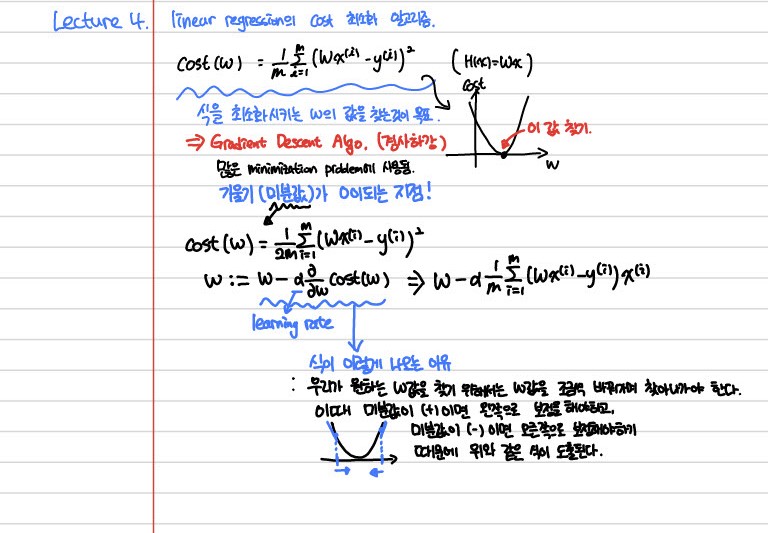 Lecture 4. linear regression의 cost 최소화 알고리즘.
cost(w) = 1/m Σ_{i=1}^{m} (Wx^{(i)} - y^{(i)})^2
(H(x)=Wx)
cost
식을 최소화시키는 w의 값을 찾는것이 목표.
이 값 찾기.
⇒ Gradient Descent Algo. (경사하강)
w
많은 minimization problem에 사용됨.
기울기 (미분값)가 0이되는 지점!
cost(w) = 1/2m Σ_{i=1}^{m} (Wx^{(i)} - y^{(i)})^2
w := w - α ∂/∂w cost(w) ⇒ w - α 1/m Σ_{i=1}^{m} (Wx^{(i)} - y^{(i)}) x^{(i)}
learning rate
식이 이렇게 나오는 이유
: 우리가 원하는 w값을 찾기 위해서는 w값을 조금씩 바꿔가며 찾아나가야 한다.
이때 미분값이 (+)이면 왼쪽으로 보정을 해야하고,
미분값이 (-)이면 오른쪽으로 보정해야하기
때문에 위와 같은 식이 도출된다.